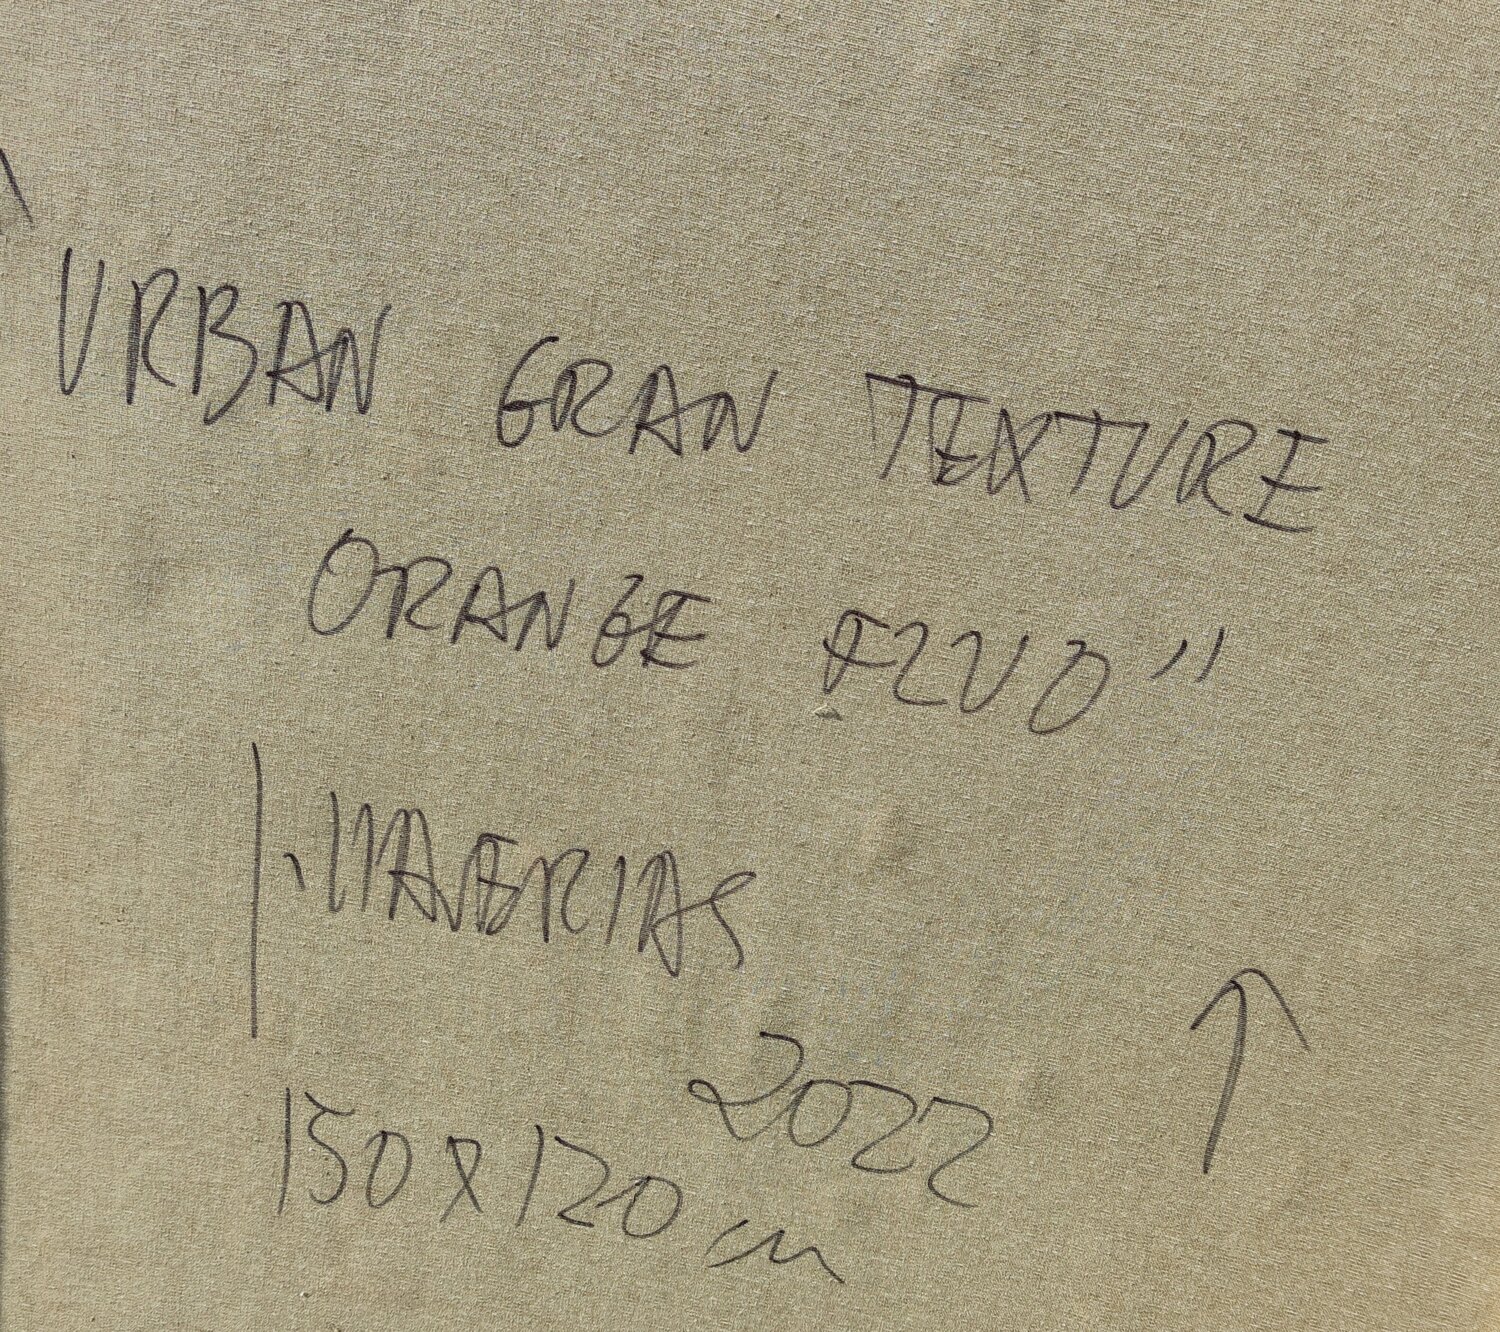 URBAN GRAN TEXTURE
ORANGE FLUO"
2022
150 x 120 cm